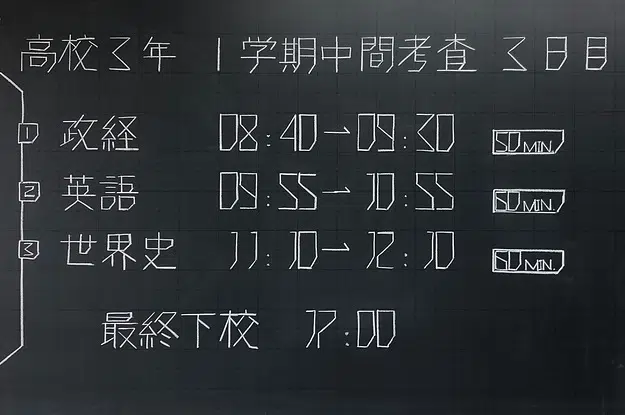 高校3年 1学期中間考査 3日目
1 政経 08:40→09:30 50MIN.
2 英語 09:55→10:55 50MIN.
3 世界史 11:10→12:10 50MIN.
最終下校 17:00